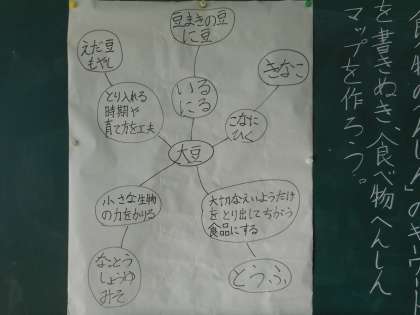 豆まきの豆
に豆
えだ豆
もやし
きなこ
いる
にる
とり入れる
時期や
育て方を工夫
こなに
ひく
大豆
小さな生物
の力をかりる
大切なえいようだけ
をとり出してちがう
食品にする
なっとう
しょうゆ
みそ
とうふ
を書きぬき、食べ物へんしん
マップを作ろう。